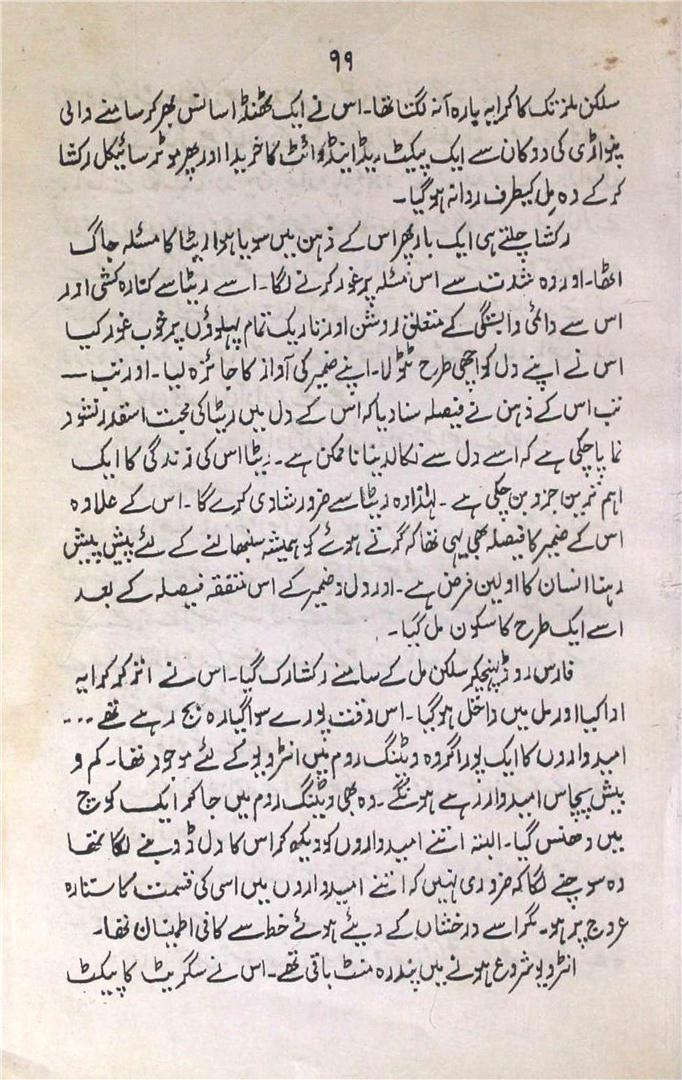 ۹۹
سلکن ملز تک کا کرایہ بارہ آنہ لگتا تھا۔ اس نے ایک ٹھنڈا سانس بھر کر سامنے والی
پنواڑی کی دوکان سے ایک پیکٹ ریڈ اینڈ وائٹ کا خریدا اور پھر موٹر سائیکل رکشا
کر کے وہ مِل کیطرف روانہ ہو گیا۔
رکشا چلتے ہی ایک بار پھر اس کے ذہن میں سویا ہوا ریٹا کا مسئلہ جاگ
اٹھا۔ اور وہ شدت سے اس مسئلہ پر غور کرنے لگا۔ اسے ریٹا سے کنارہ کشی اور
اس سے دائمی وابستگی کے متعلق روشن اور تاریک تمام پہلوؤں پر خوب غور کیا
اس نے اپنے دل کو اچھی طرح ٹٹولا۔ اپنے ضمیر کی آواز کا جائزہ لیا۔ اور تب —
تب اس کے ذہن نے فیصلہ سنا دیا کہ اس کے دل میں ریٹا کی محبت اسقدر نشو و
نما پا چکی ہے کہ اسے دل سے نکالدینا ناممکن ہے۔ ریٹا اس کی زندگی کا ایک
اہم ترین جزو بن چکی ہے۔ لہٰذا وہ ریٹا سے ضرور شادی کرے گا۔ اس کے علاوہ
اس کے ضمیر کا فیصلہ بھی یہی تھا کہ گرتے ہوئے کو ہمیشہ سنبھالنے کے لئے پیش پیش
رہنا انسان کا اولین فرض ہے۔ اور دل و ضمیر کے اس متفقہ فیصلہ کے بعد
اسے ایک طرح کا سکون مل گیا۔
فارس روڈ پہنچکر سلکن مل کے سامنے رکشا رک گیا۔ اس نے اتر کر کرایہ
ادا کیا اور مل میں داخل ہو گیا۔ اس وقت پورے سوا گیارہ بج رہے تھے ...
امیدواروں کا ایک پورا گروہ ویٹنگ روم میں انٹرویو کے لئے موجود تھا۔ کم و
بیش پچاس امیدوار رہے ہونگے۔ وہ بھی ویٹنگ روم میں جا کر ایک کوچ
میں دھنس گیا۔ البتہ اتنے امیدواروں کو دیکھ کر اس کا دل ڈوبنے لگا تھا
وہ سوچنے لگا کہ ضروری نہیں کہ اتنے امیدواروں میں اسی کی قسمت کا ستارہ
عروج پر ہو۔ مگر اسے درخشاں کے دیئے ہوئے خط سے کافی اطمینان تھا۔
انٹرویو شروع ہونے میں پندرہ منٹ باقی تھے۔ اس نے سگریٹ کا پیکٹ